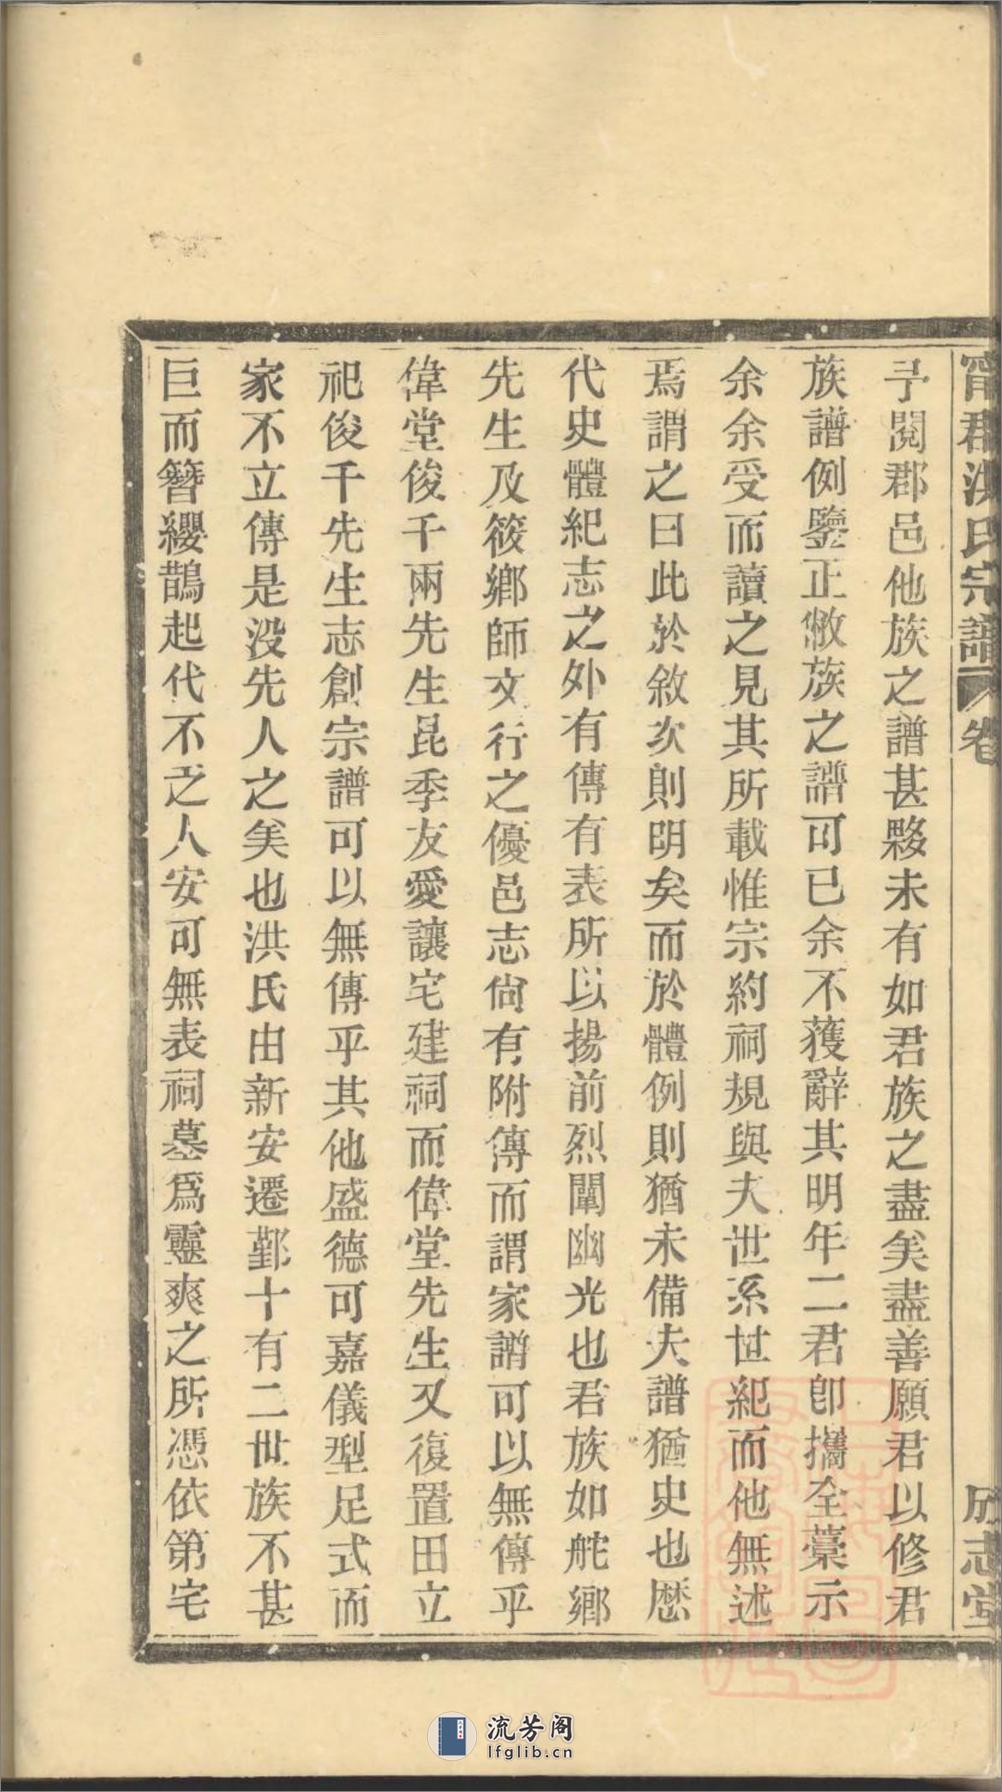 甯郡洪氏宗譜 卷
欣志堂
予閱郡邑他族之譜甚夥未有如君族之盡矣盡善願君以修君
族譜例鑒正敝族之譜可已余不獲辭其明年二君卽攜全藳示
余余受而讀之見其所載惟宗約祠規與夫世系世紀而他無述
焉謂之曰此於敘次則明矣而於體例則猶未備夫譜猶史也歷
代史體紀志之外有傳有表所以揚前烈闡幽光也君族如舵鄉
先生及筱鄉師文行之優邑志尙有附傳而謂家譜可以無傳乎
偉堂俊千兩先生昆季友愛讓宅建祠而偉堂先生又復置田立
祀俊千先生志創宗譜可以無傳乎其他盛德可嘉儀型足式而
家不立傳是没先人之矣也洪氏由新安遷鄞十有二世族不甚
巨而簪纓鵲起代不乏人安可無表祠墓爲靈爽之所憑依第宅
流芳阁
lfglib.cn